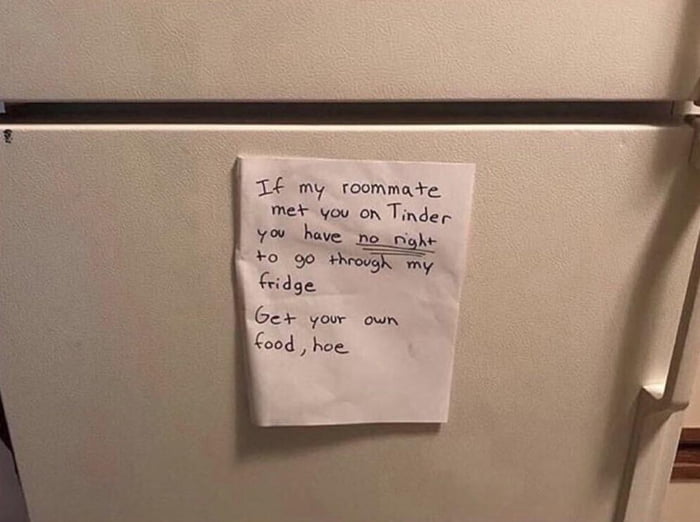 If my roommate
met you on Tinder
you have no right
to go through my
fridge
Get your own
food, hoe